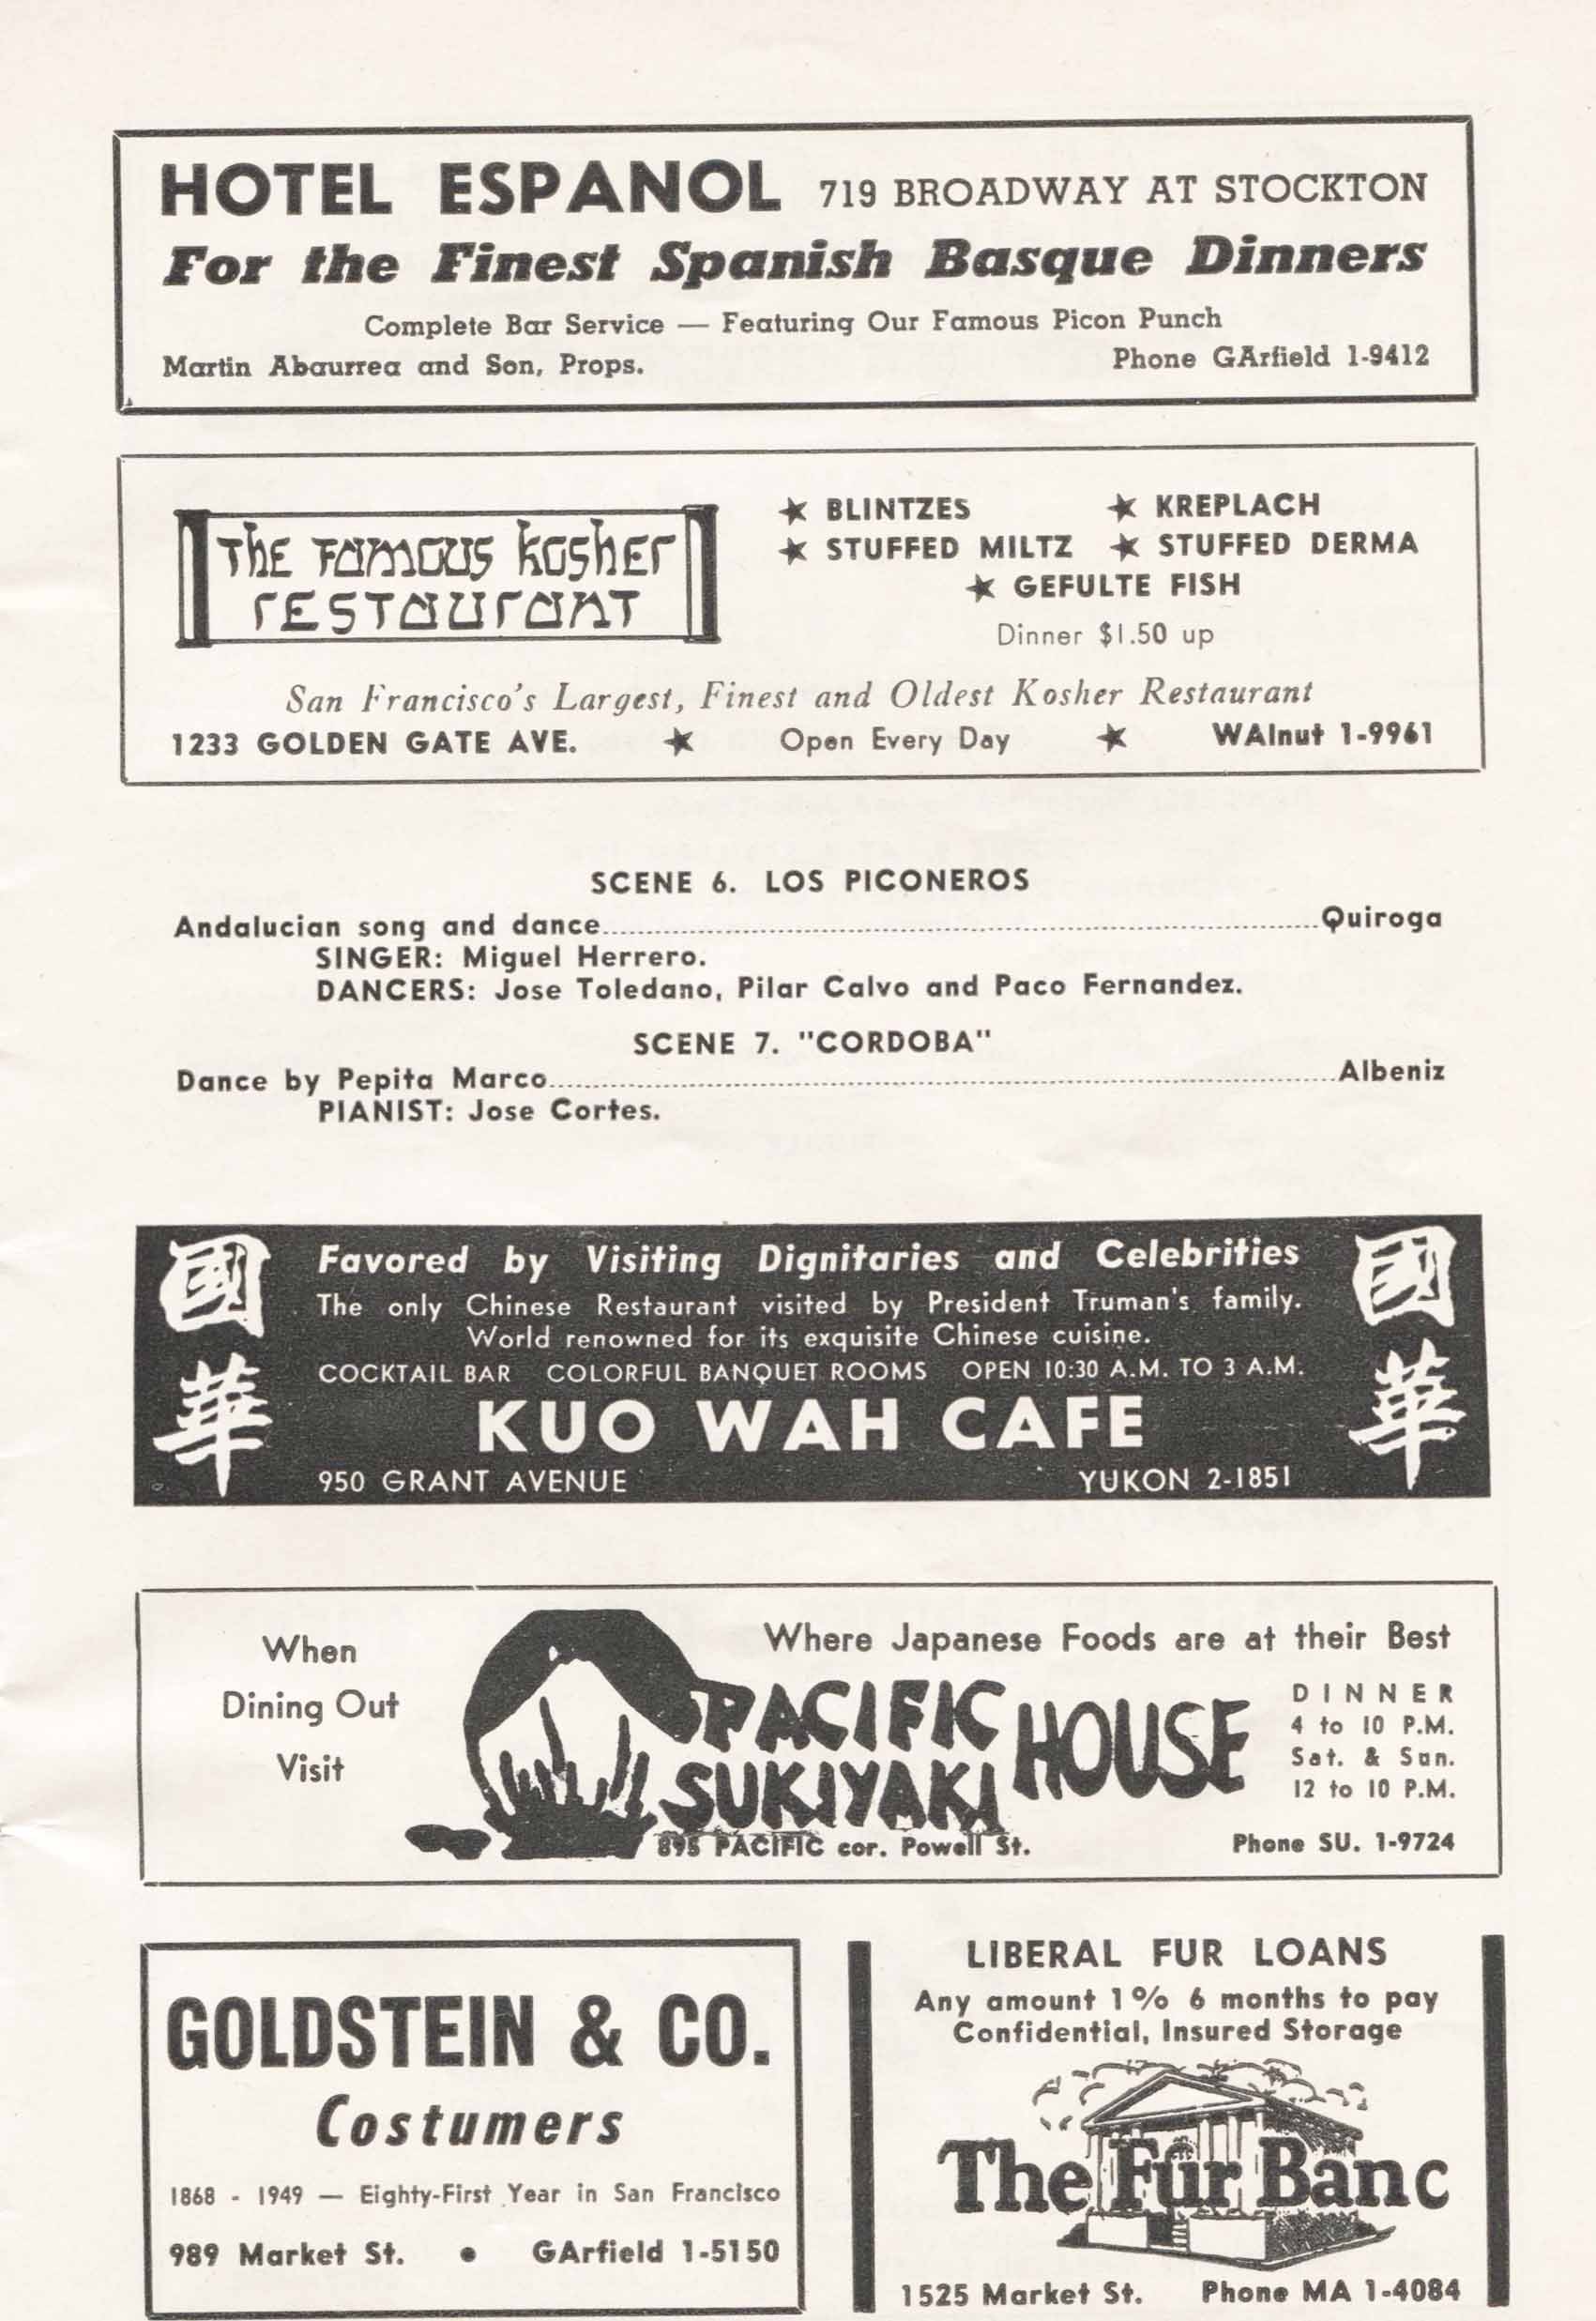 HOTEL ESPANOL 719 BROADWAY AT STOCKTON
For the Finest Spanish Basque Dinners
Complete Bar Service — Featuring Our Famous Picon Punch
Martin Abaurrea and Son, Props. Phone GArfield 1-9412
THE FAMOUS KOSHER
RESTAURANT
★ BLINTZES ★ KREPLACH
★ STUFFED MILTZ ★ STUFFED DERMA
★ GEFULTE FISH
Dinner $1.50 up
San Francisco's Largest, Finest and Oldest Kosher Restaurant
1233 GOLDEN GATE AVE. ★ Open Every Day ★ WAlnut 1-9961
SCENE 6. LOS PICONEROS
Andalucian song and dance Quiroga
SINGER: Miguel Herrero.
DANCERS: Jose Toledano, Pilar Calvo and Paco Fernandez.
SCENE 7. "CORDOBA"
Dance by Pepita Marco Albeniz
PIANIST: Jose Cortes.
國華
Favored by Visiting Dignitaries and Celebrities
The only Chinese Restaurant visited by President Truman's family.
World renowned for its exquisite Chinese cuisine.
COCKTAIL BAR COLORFUL BANQUET ROOMS OPEN 10:30 A.M. TO 3 A.M.
KUO WAH CAFE
950 GRANT AVENUE YUKON 2-1851
國華
When
Dining Out
Visit
Where Japanese Foods are at their Best
PACIFIC
SUKIYAKI
HOUSE
895 PACIFIC cor. Powell St.
DINNER
4 to 10 P.M.
Sat. & Sun.
12 to 10 P.M.
Phone SU. 1-9724
GOLDSTEIN & CO.
Costumers
1868 - 1949 — Eighty-First Year in San Francisco
989 Market St. • GArfield 1-5150
LIBERAL FUR LOANS
Any amount 1% 6 months to pay
Confidential, Insured Storage
The Fur Banc
1525 Market St. Phone MA 1-4084